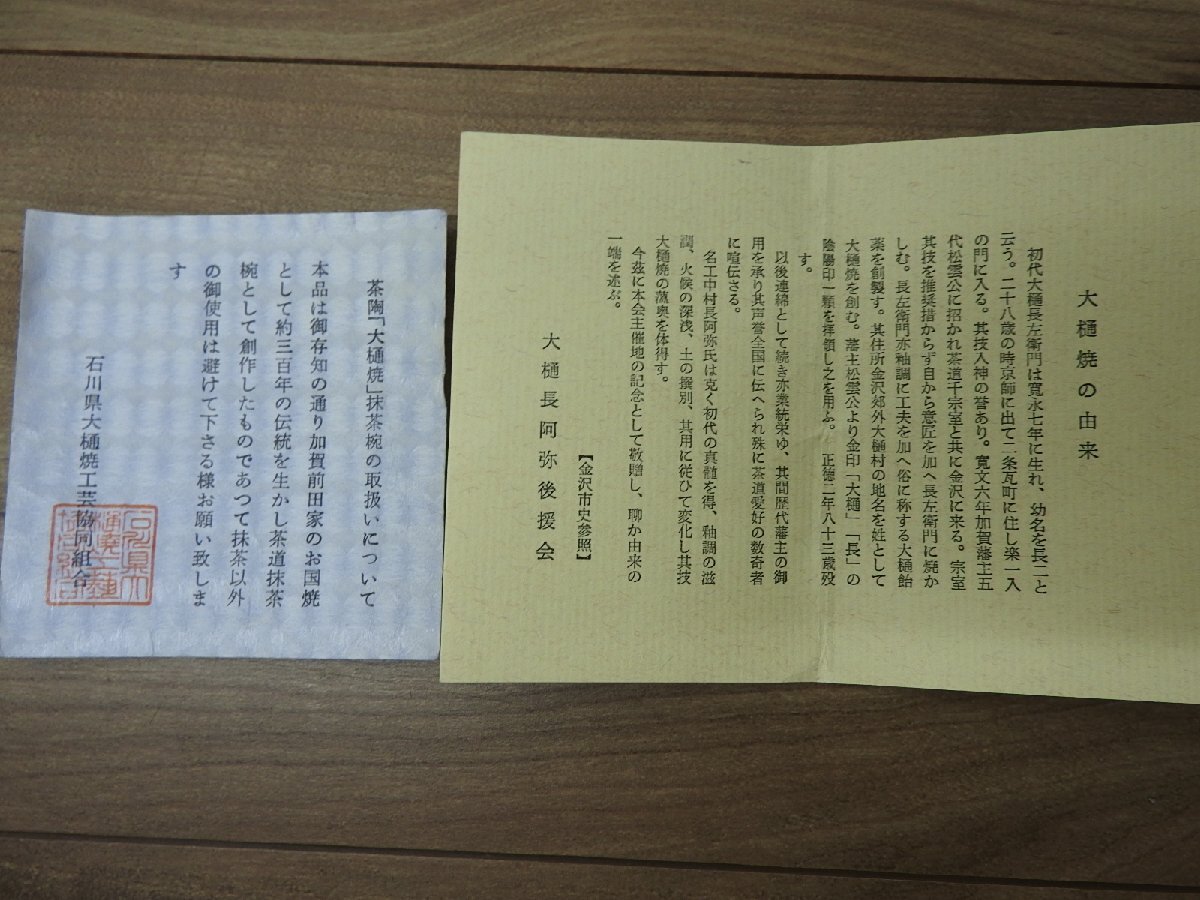 大樋焼の由来
初代大樋長左衛門は寛永七年に生れ、幼名を長二と
云う。二十八歳の時京師に出て二条瓦町に住し楽一入
の門に入る。其技入神の誉あり。寛文六年加賀藩主五
代松雲公に招かれ茶道千宗室と共に金沢に来る。宗室
其技を推奨措からず自から意匠を加へ長左衛門に焼か
しむ。長左衛門亦釉調に工夫を加へ俗に称する大樋飴
薬を創製す。其住所金沢郊外大樋村の地名を姓として
大樋焼を創む。藩主松雲公より金印「大樋」「長」の
陰陽印一顆を拝領し之を用ふ。 正徳二年八十三歳歿
す。
以後連綿として続き亦業統栄ゆ、其間歴代藩主の御
用を承り其声誉全国に伝へられ殊に茶道愛好の数奇者
に喧伝さる。
名工中村長阿弥氏は克く初代の真髄を得、釉調の滋
潤、火候の深浅、土の撰別、其用に従ひて変化し其技
大樋焼の薀奥を体得す。
今玆に本会主催地の記念として敬贈し、聊か由来の
一端を述ぶ。
【金沢市史参照】
大樋長阿弥後援会
茶陶「大樋焼」抹茶椀の取扱いについて
本品は御存知の通り加賀前田家のお国焼
として約三百年の伝統を生かし茶道抹茶
椀として創作したものであつて抹茶以外
の御使用は避けて下さる様お願い致しま
す
石川県大樋焼工芸協同組合